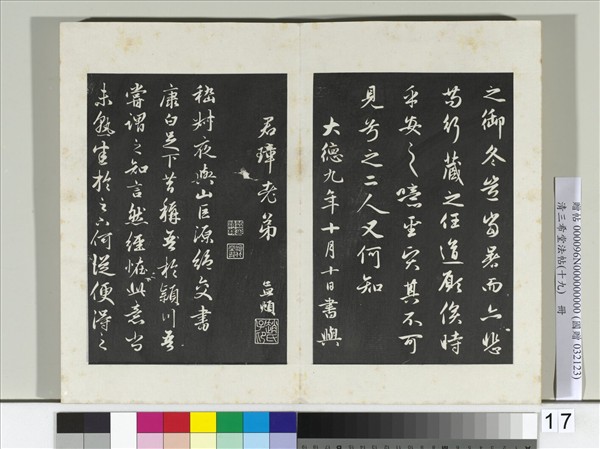 之御冬豈當暑而亦悲
苟行藏之任道願俟時
乎安之噫其不可
見兮之二人又何知
大德九年十月十日書與
君璋老弟
孟頫
趙氏子昂
嵇叔夜與山巨源絕交書
康白足下昔稱吾於潁川吾
嘗謂之知言然經怪此意尚
未熟悉於足下何從便得之
贈帖 000096N000000000 (國贈 032123)
清三希堂法帖(十九) 冊
17